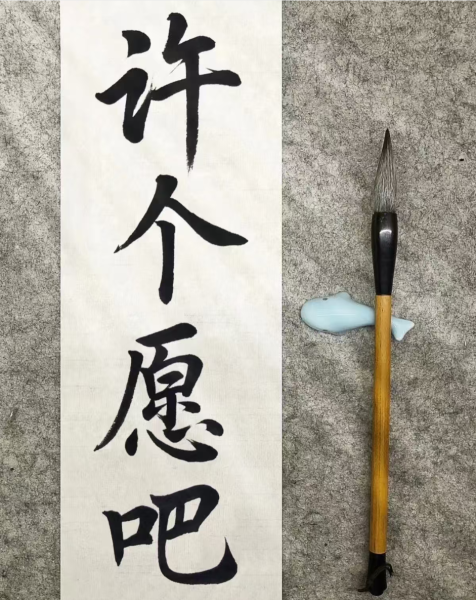 许个愿吧